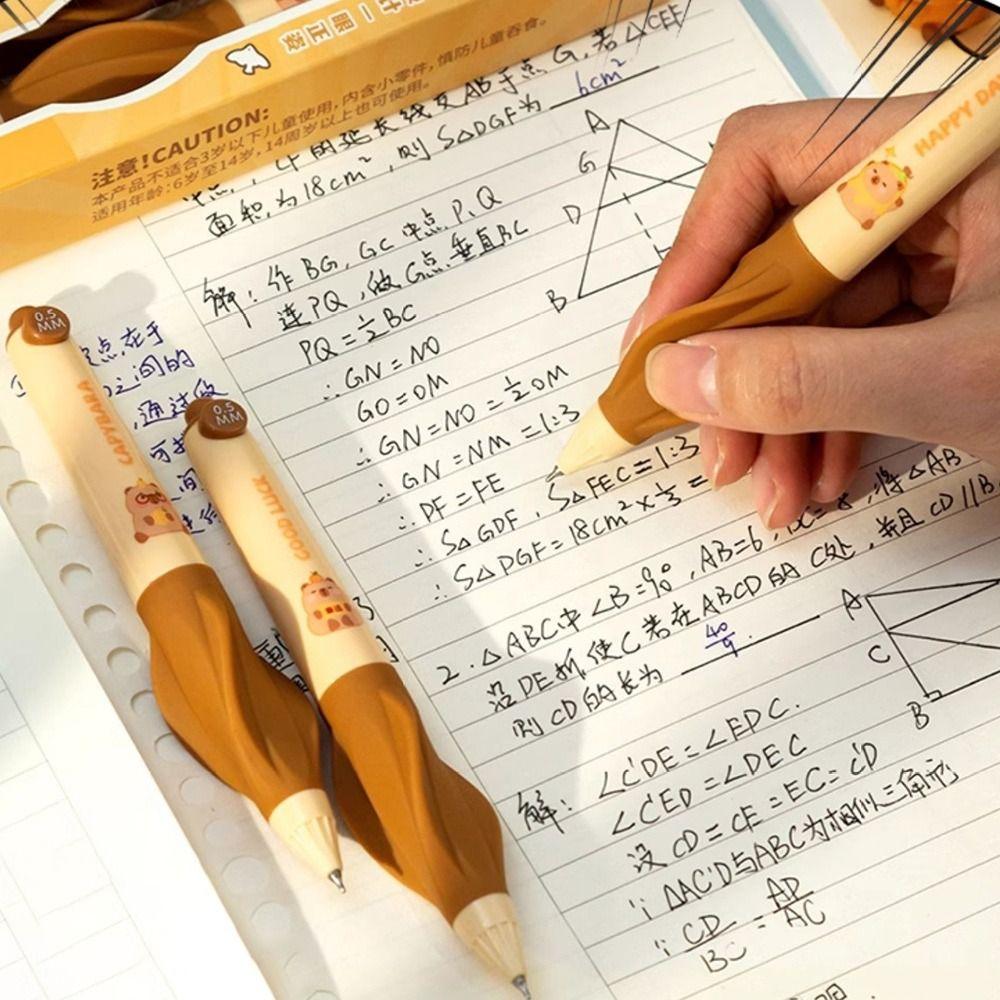 注意!CAUTION:
本产品不适合3岁以下儿童使用,内含小零件,慎防儿童吞食。
适用年龄:6岁至14岁,14周岁以上也可使用。
的延长线交AB于点G,若△CEF
面积为18cm²,则S△DGF为 6cm²
解:作BG,GC中点P,Q
连PQ,做G点垂直BC
PQ=½BC
∴GN=NO
GO=OM
∴GN=NO=½OM
∴GN=NM=1:3
∴DF=FE
∴S△GDF,S△FEC=1:3
∴S△DGF=18cm²×⅓=
2.△ABC中∠B=90°,AB=6,将△AB
沿DE折,使C落在ABCD的C处,并且CD//B
则CD的长为 40/9
解:∠C'DE=∠EDC.
∠C'ED=∠DEC
设CD=CE=EC=C'D
∵△AC'D与ABC为相似三角形
∵CD/BC=AD/AC
A
G
D
B
A
C
B
点在于
之间的
通过做
0.5
MM
CAPYBARA
0.5
MM
GOOD LUCK
HAPPY DA